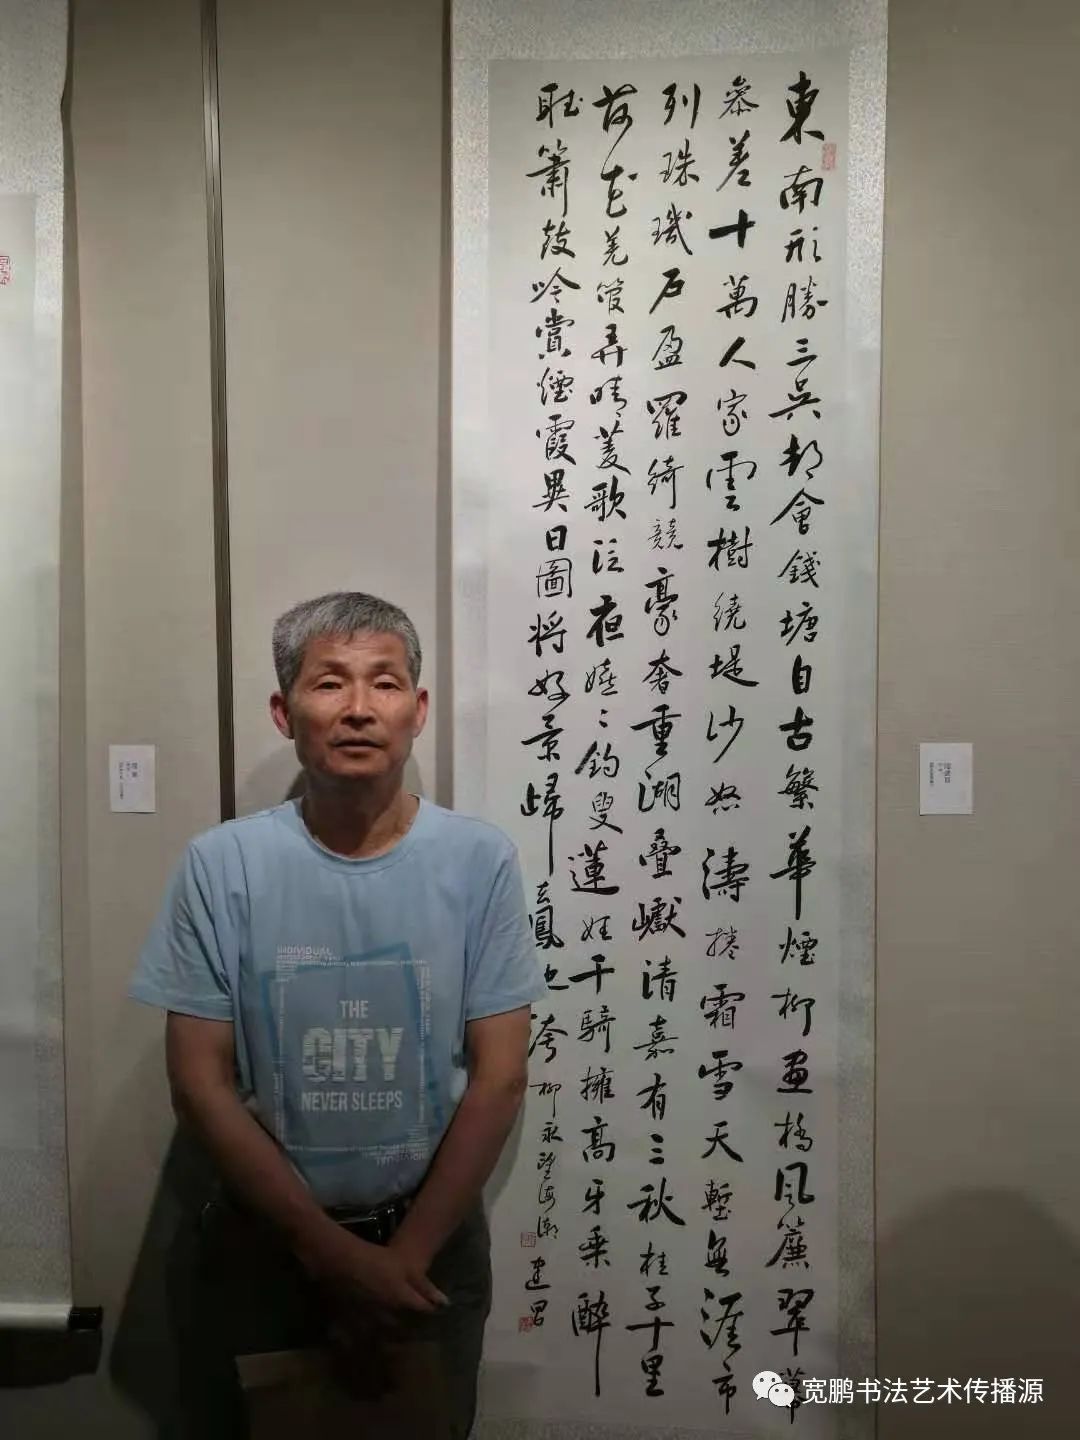 東南形勝三吳都會錢塘自古繁華煙柳畫橋風簾翠幕
參差十萬人家雲樹繞堤沙怒濤捲霜雪天塹無涯市
列珠璣戶盈羅綺競豪奢重湖疊巘清嘉有三秋桂子十里
荷花羌管弄晴菱歌泛夜嬉〻釣叟蓮娃千騎擁高牙乘醉
聽簫鼓吟賞煙霞異日圖將好景歸去鳳池誇
柳永望海潮
建昌
INDIVIDUAL
THE
CITY
NEVER SLEEPS
INDIVIDUAL
宽鹏书法艺术传播源